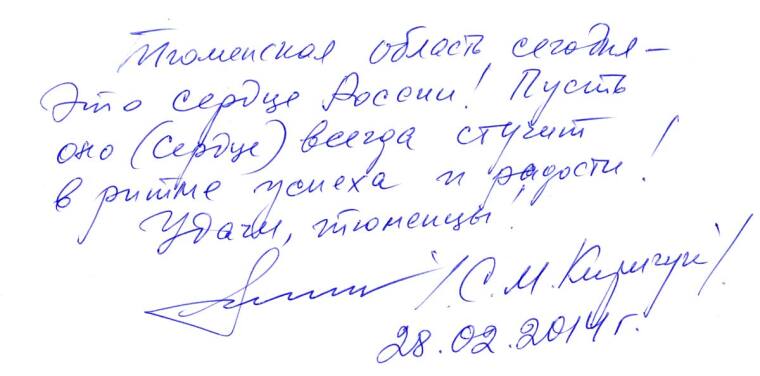 Тюменская область сегодня –
это сердце России! Пусть
оно (сердце) всегда стучит
в ритме успеха и радости!
Удачи, тюменцы!
/С.М. Киричук/
28.02.2014 г.